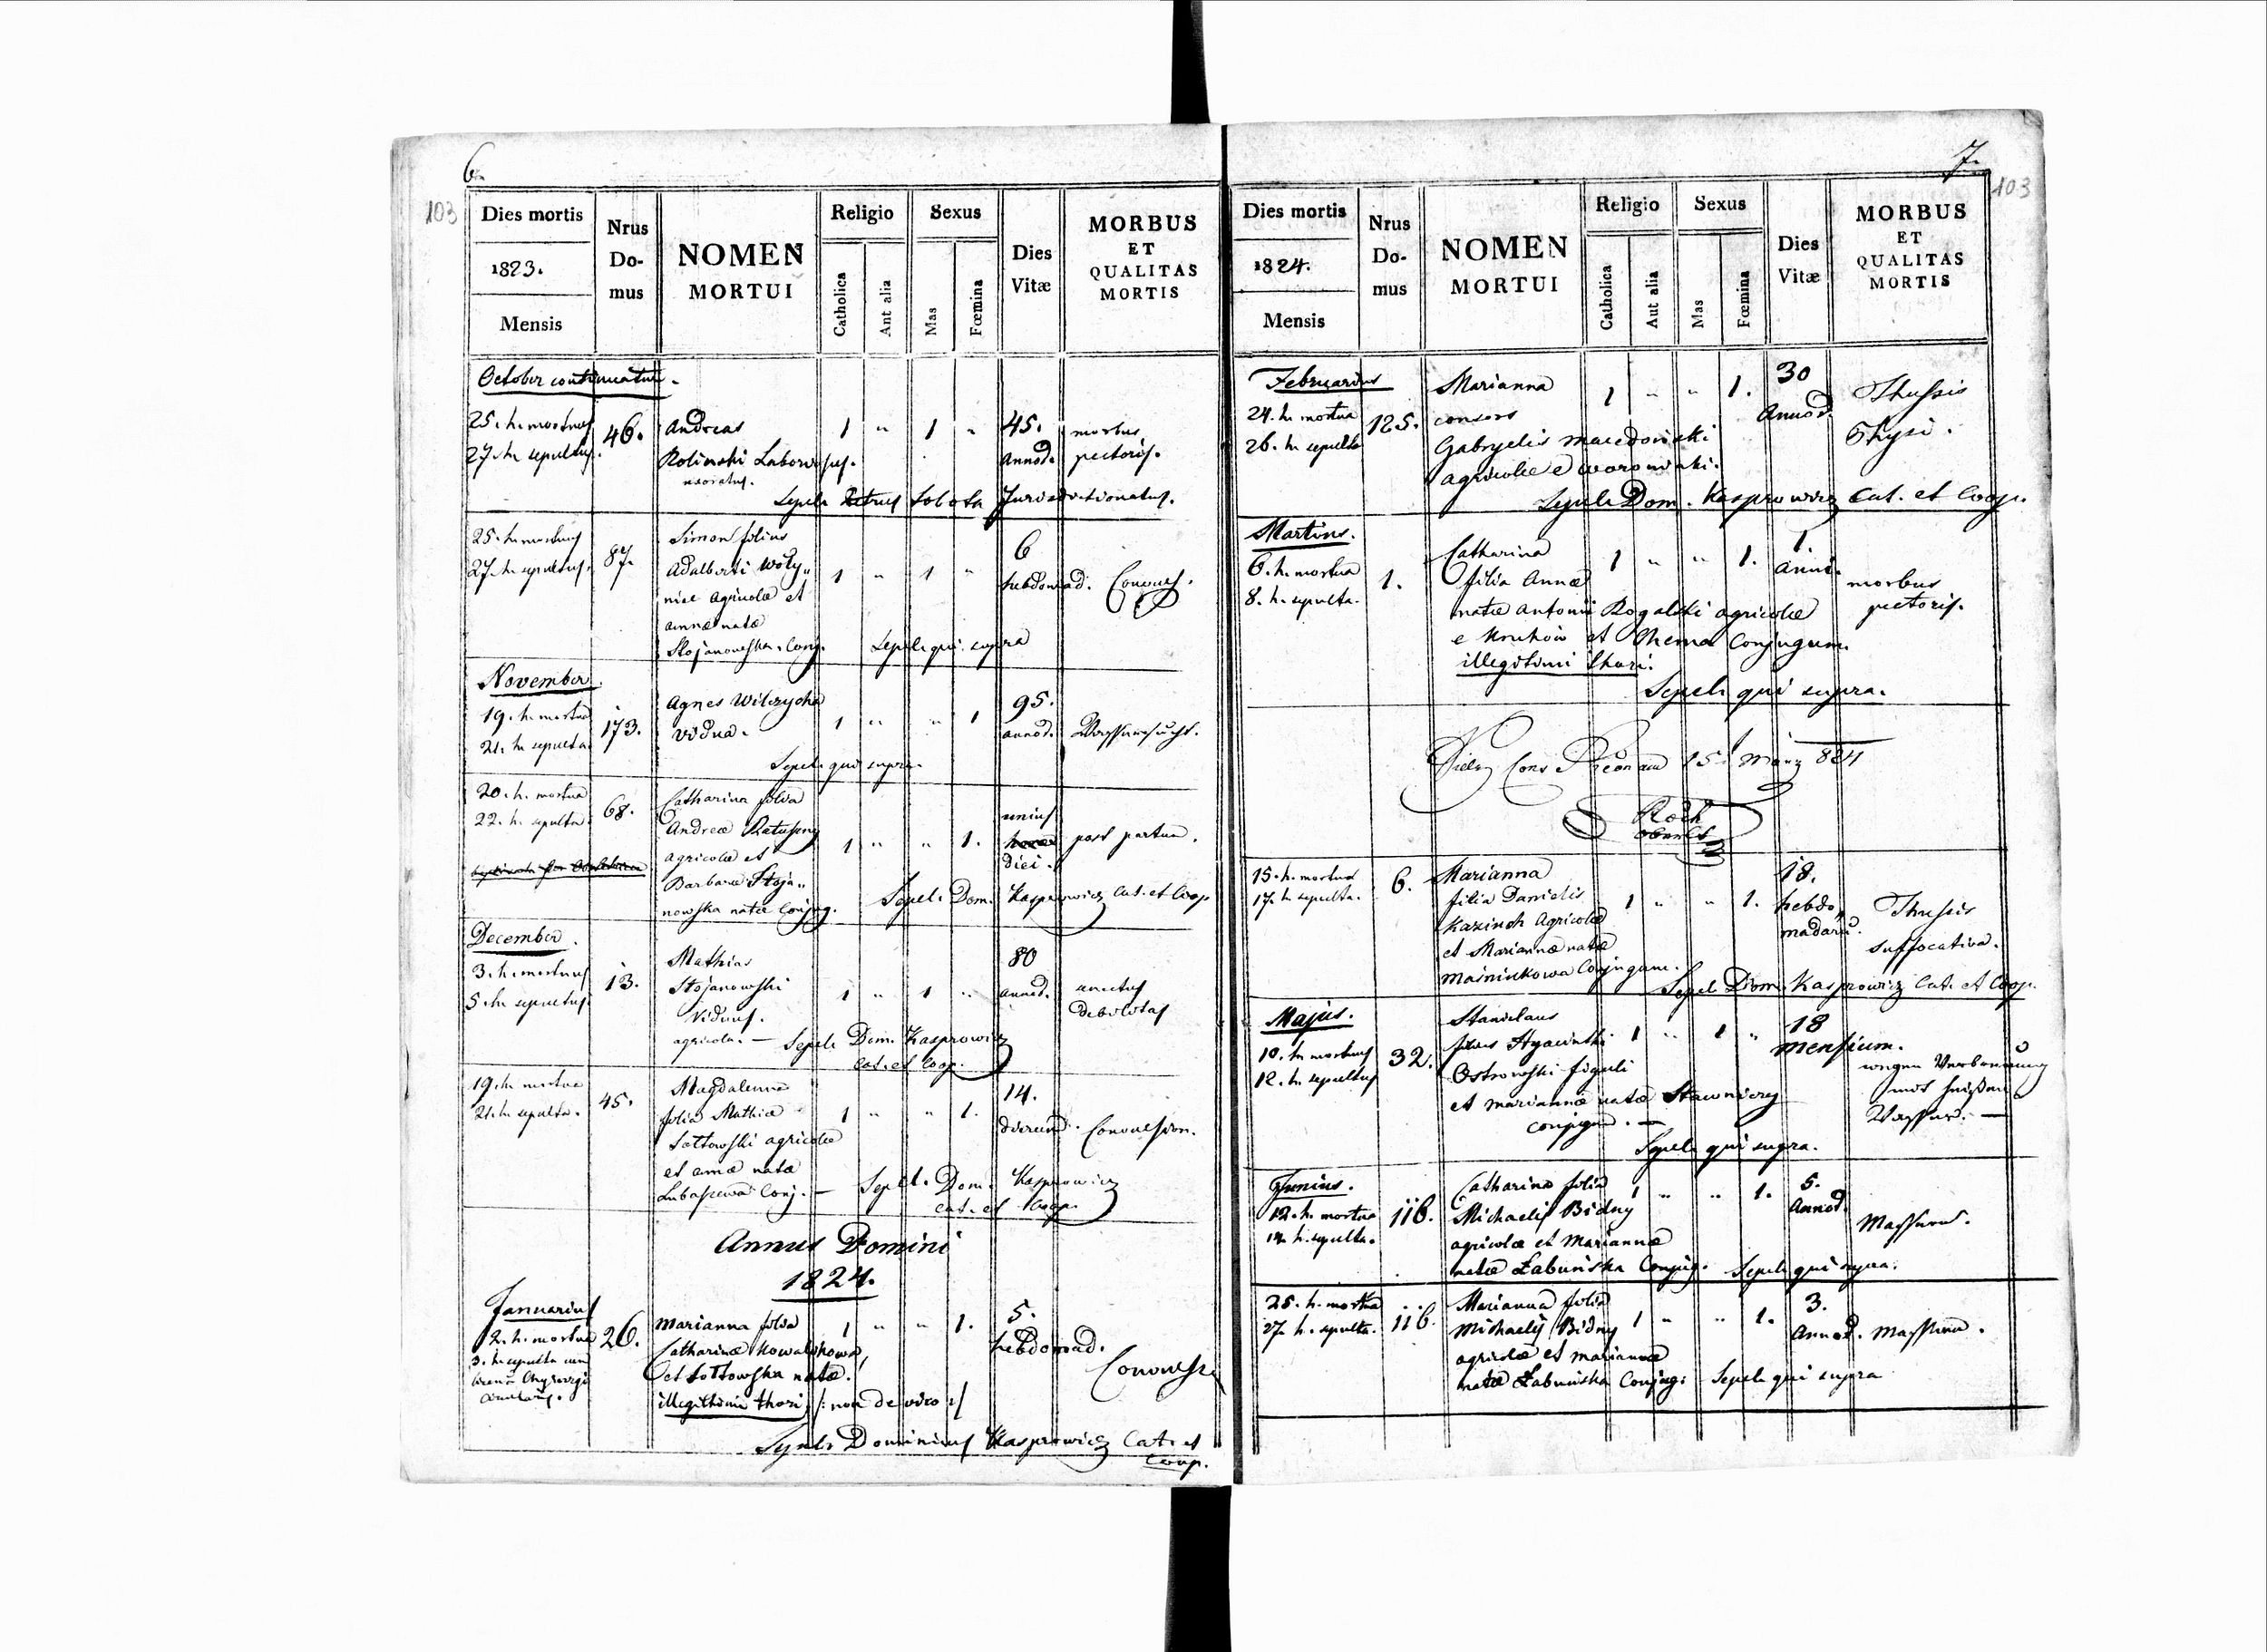 6.
103
Dies mortis
1823.
Mensis
Nrus
Do-
mus
NOMEN
MORTUI
Religio
Catholica
Aut alia
Sexus
Mas
Fœmina
Dies
Vitæ
MORBUS
ET
QUALITAS
MORTIS
October continuatur.
25. h. mortuus 46. Andreas 1 " 1 " 45. morbus
27. h. sepultus. Rolinski Laboriosus. annor. pectoris.
uxoratus.
Sepel. Petrus Sobota Jurisdictionatus.
25. h. mortuus 87. Simon filius 6
27. h. sepultus. Adalberti Woły„ 1 " 1 " hebdomad. Convuls.
niec Agricolæ et
annæ natæ
Stojanowska. Conj. Sepel. qui supra
November.
19. h. mortua 173. Agnes Wilczycha 1 " " 1 95.
21. h. sepulta. Vidua. annor. Wassersucht.
Sepel. qui supra.
20. h. mortua 68. Catharina filia unius
22. h. sepulta. Andreæ 1 " " 1. diei. post partum.
agricolæ et
Barbaræ Stoja„
nowska natæ Conjug. Sepel. Dom. Kasprowicz Cat. et Coop
December.
3. h. mortuus 13. Mathias 80
5. h. sepultus. Stojanowski 1 " 1 " annor.
Viduus.
agricola. — Sepel. Dom. Kasprowicz
Cat. et Coop.
19. h. mortua 45. Magdalenna 14.
21. h. sepulta. filia Mathiæ 1 " " 1. dierum. Convulsion.
Sołtowski agricolæ
et annæ natæ
Conj. — Sepel. Dom. Kasprowicz
cat. et Coop.
Annus Domini
1824.
Januarius
2. h. mortua 26. Marianna filia 1 " " 1. 5.
3. h. sepulta Catharinæ Kowalskowa, hebdomad.
et Sołtowska natæ. Convuls.
illegithimi thori /: non de viro :/
Sepel. Dominicus Kasprowicz Cat. et
Coop.
7.
103
Dies mortis
1824.
Mensis
Nrus
Do-
mus
NOMEN
MORTUI
Religio
Catholica
Aut alia
Sexus
Mas
Fœmina
Dies
Vitæ
MORBUS
ET
QUALITAS
MORTIS
Februarius Marianna 1 " " 1. 30 Thussis
24. h. mortua 125. consors annor.
26. h. sepulta Gabryelis Macedoński
agricolæ e
Sepel. Dom. Kasprowicz Cat. et Coop.
Martius.
6. h. mortua 1. Catharina 1 " " 1. 1.
8. h. sepulta. filia Annæ anni. morbus
natæ Antonii Rogalski agricolæ pectoris.
e et Conjugum.
illegitimi thori.
Sepel. qui supra.
15. März 824
15. h. mortua 6. Marianna 18.
17. h. sepulta. filia Danielis 1 " " 1. hebdo„ Thussis
Agricolæ madarū. suffocativa.
et Mariannæ natæ
Conjugum.
Sepel. Dom. Kasprowicz Cat. et Coop.
Majus. Stanislaus
10. h. mortuus 32. filius Hyacinthi 1 " 1 " 18
12. h. sepultus Ostrowski figuli mensium. wegen Verbrennung
et mariannæ natæ Stawniczy mit heißen
conjugum. — Wasser. —
Sepel. qui supra.
Junius.
12. h. mortua 116. Catharina filia 1 " " 1. 5.
14. h. sepulta. Michaelis Bidny annor. Massern.
agricolæ et Mariannæ
natæ Łabuńska Conjug. Sepel. qui supra.
25. h. mortua 116. Marianna filia 3.
27. h. sepulta. Michaelis Bidny 1 " " 1. annor. Massern.
agricolæ et mariannæ
natæ Łabuńska Conjug: Sepel. qui supra